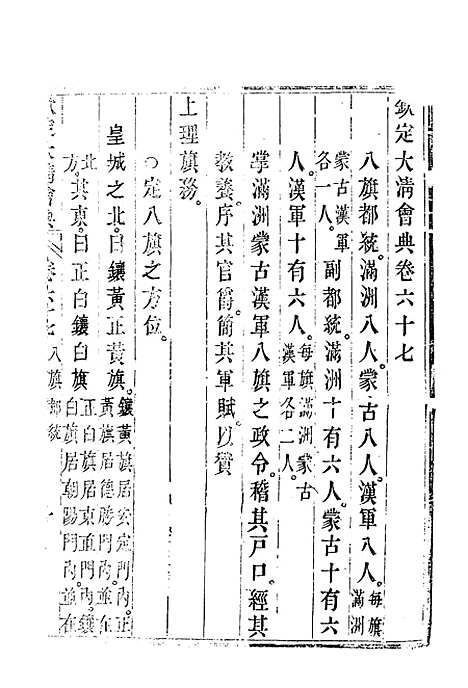 欽定大清會典卷六十七
八旗都統。滿洲八人。蒙古八人。漢軍八人。每旗滿洲
蒙古漢軍各一人。副都統。滿洲十有六人。蒙古十有六
人。漢軍十有六人。每旗滿洲蒙古漢軍各二人。
掌滿洲蒙古漢軍八旗之政令。稽其戸口。經其
教養。序其官爵。簡其軍賦。以贊
上理旗務。
○定八旗之方位。
皇城之北。曰鑲黃正黃旗。鑲黃旗居安定門內。正黃旗居德勝門內。並在
北方。其東。曰正白鑲白旗。正白旗居東直門內。鑲白旗居朝陽門內。並在
欽定大清會典 卷六十七 八旗都統 一